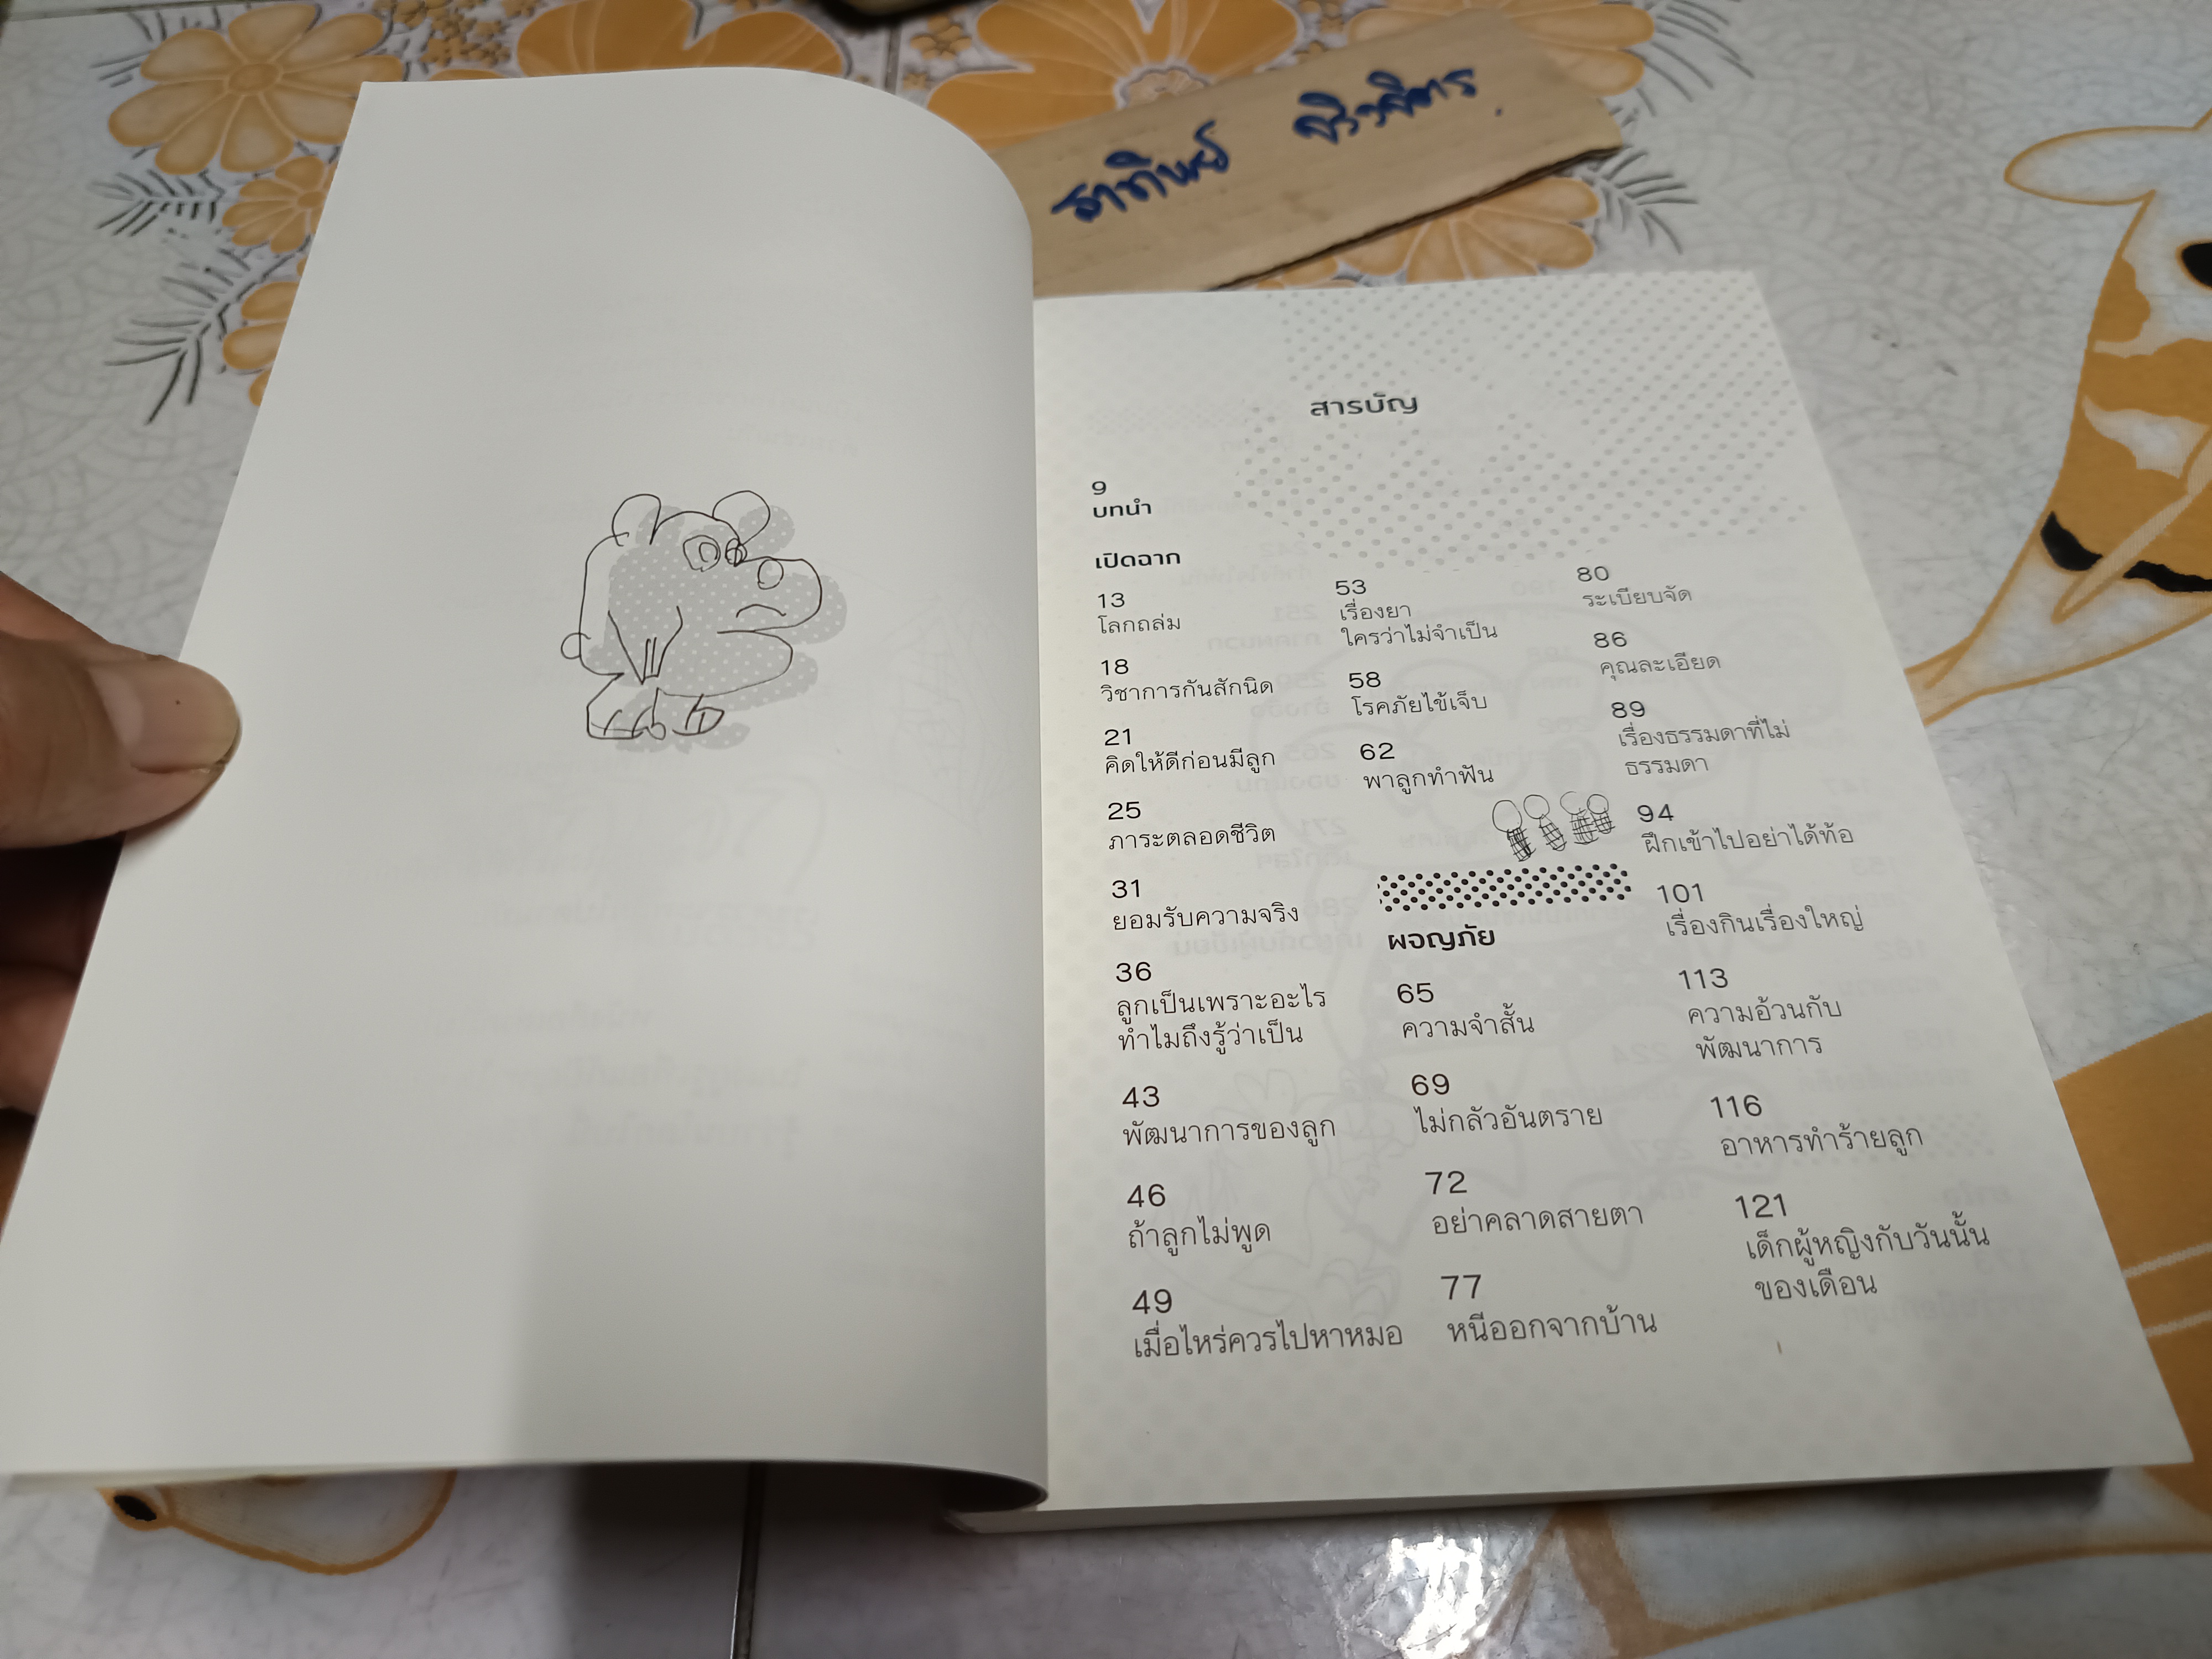 สารบัญ
9
บทนำ
เปิดฉาก
13
โลกถล่ม
18
วิชาการกันสักนิด
21
คิดให้ดีก่อนมีลูก
25
ภาระตลอดชีวิต
31
ยอมรับความจริง
36
ลูกเป็นเพราะอะไร
ทำไมถึงรู้ว่าเป็น
43
พัฒนาการของลูก
46
ถ้าลูกไม่พูด
49
เมื่อไหร่ควรไปหาหมอ
53
เรื่องยา
ใครว่าไม่จำเป็น
58
โรคภัยไข้เจ็บ
62
พาลูกทำฟัน
ผจญภัย
65
ความจำสั้น
69
ไม่กลัวอันตราย
72
อย่าคลาดสายตา
77
หนีออกจากบ้าน
80
ระเบียบจัด
86
คุณละเอียด
89
เรื่องธรรมดาที่ไม่
ธรรมดา
94
ฝึกเข้าไปอย่าได้ท้อ
101
เรื่องกินเรื่องใหญ่
113
ความอ้วนกับ
พัฒนาการ
116
อาหารทำร้ายลูก
121
เด็กผู้หญิงกับวันนั้น
ของเดือน